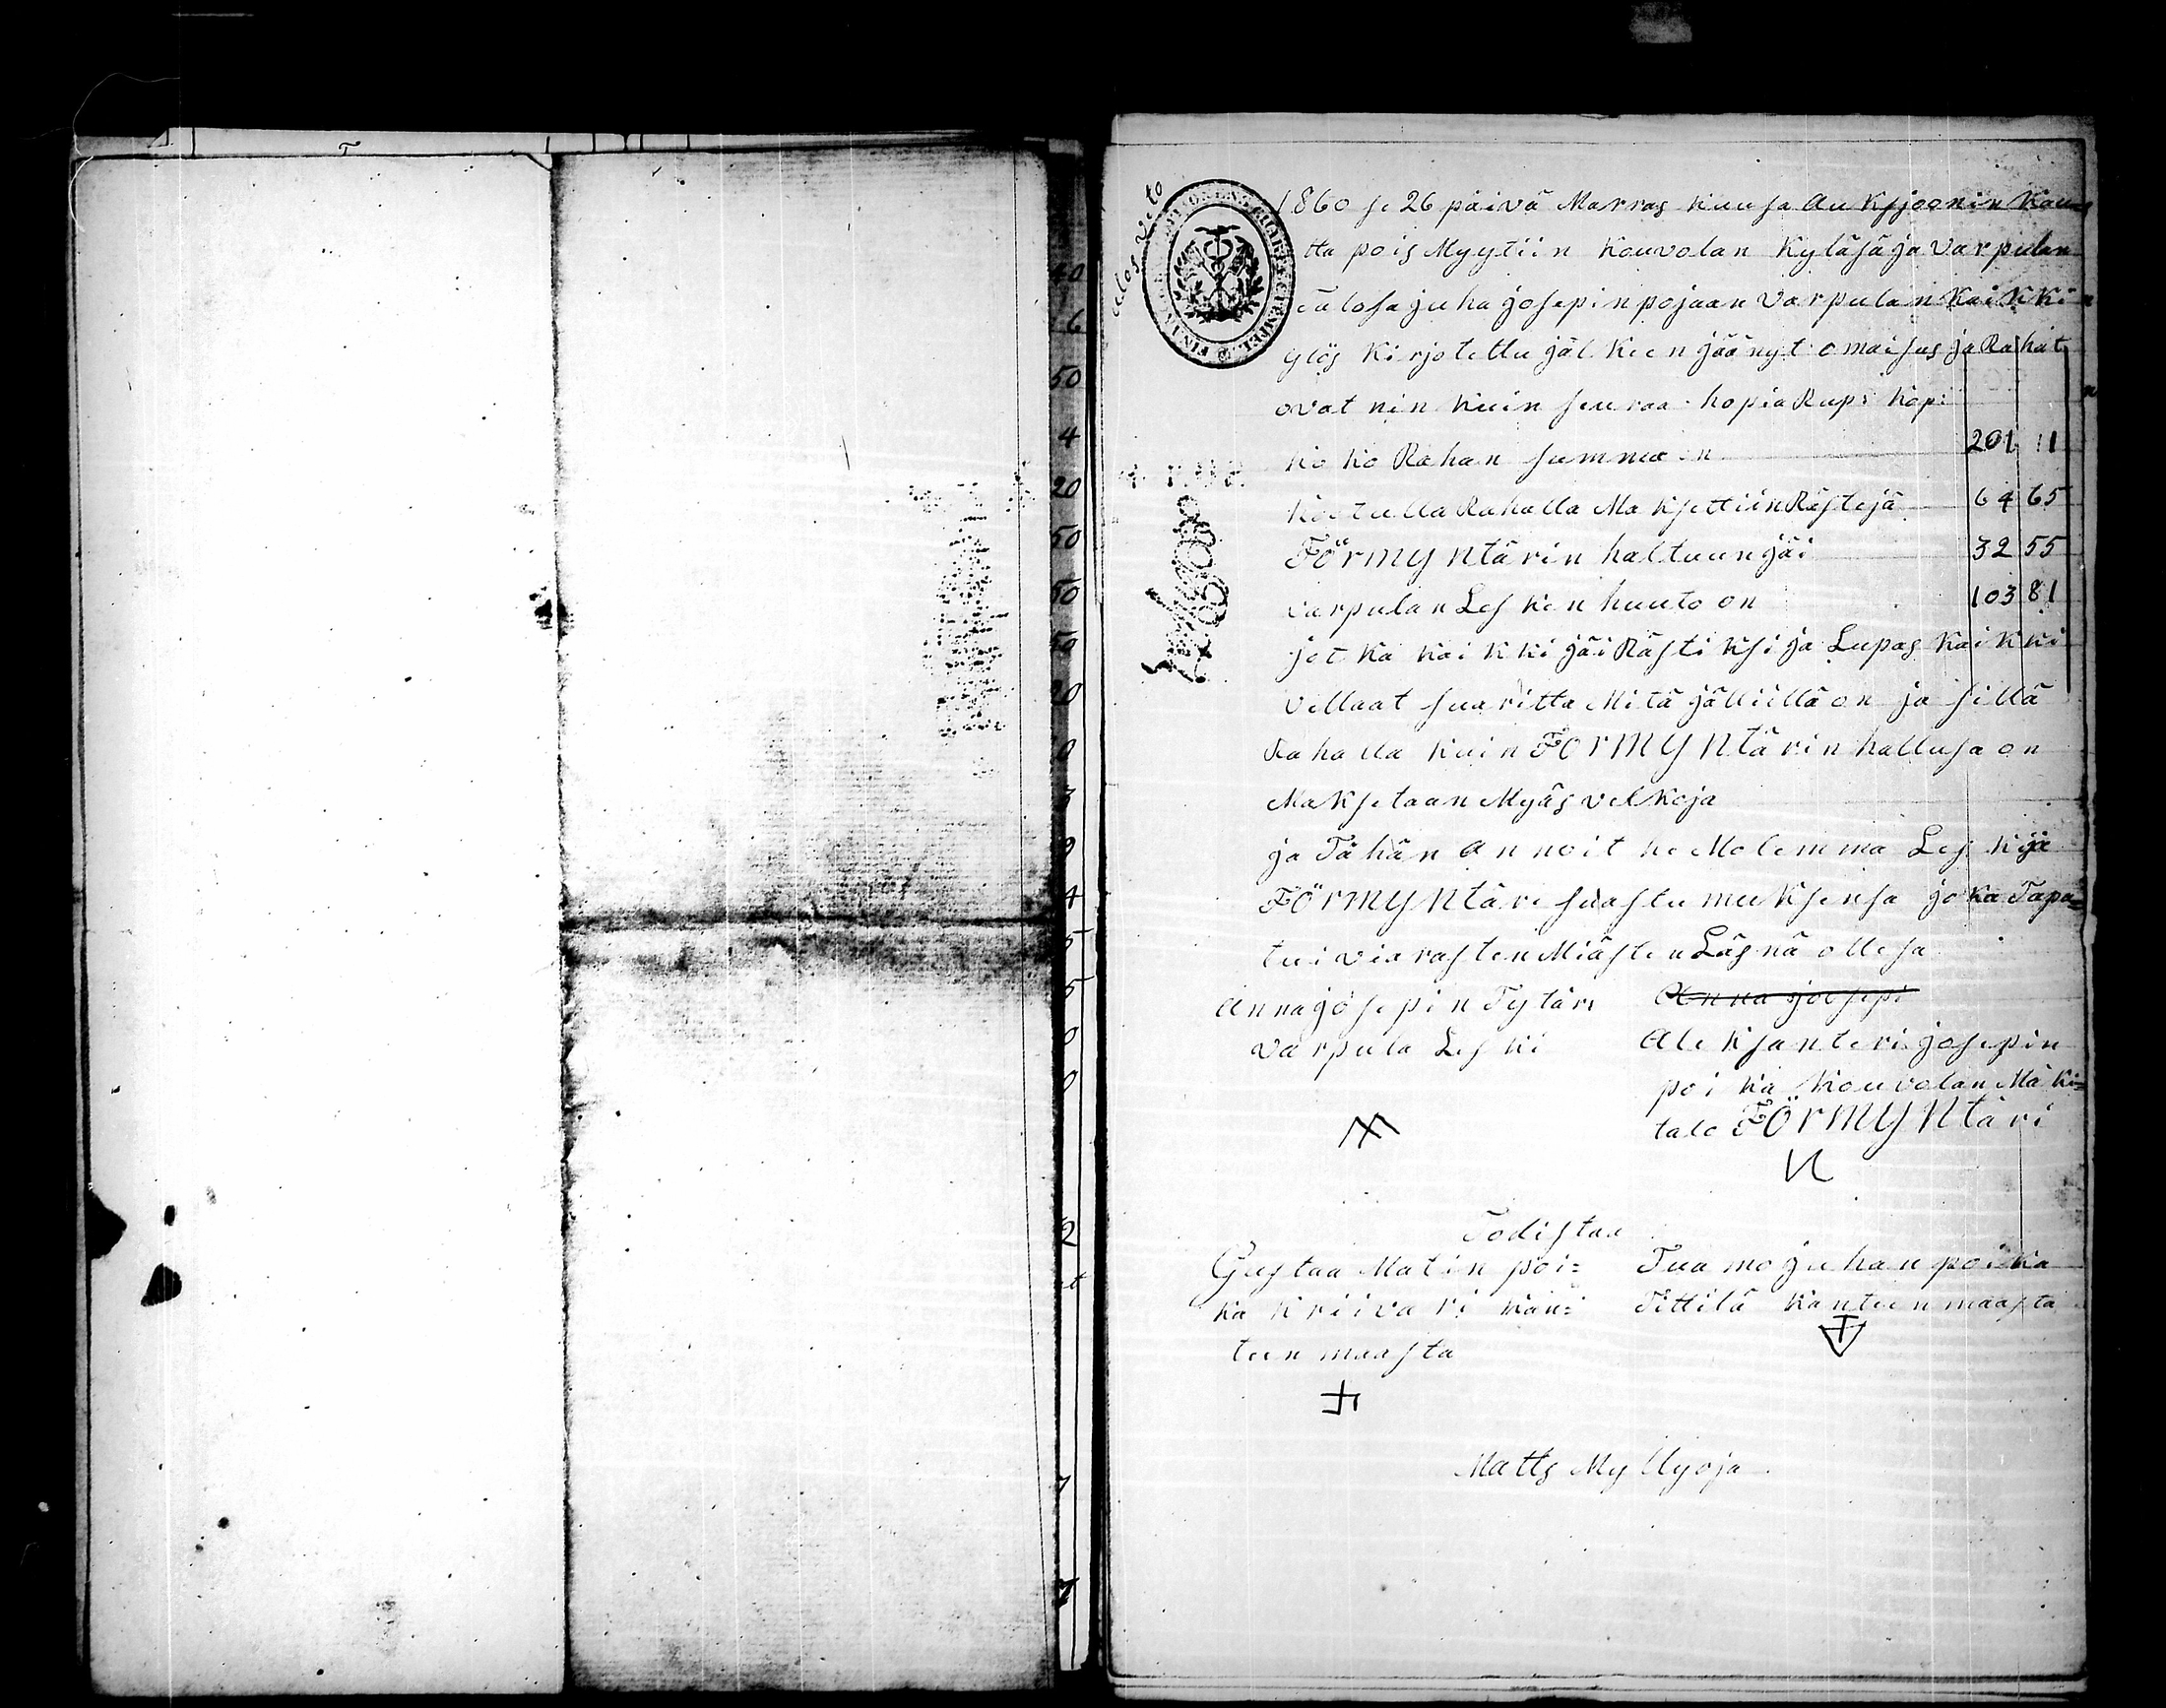 ulos veto
1860 se 26 päivä Marras kuusa Auksjoonin Kau
tta pois Myytiin Kouvolan Kyläsä ja Varpulan
Talosa juha josepin pojaan Varpulan Kaikki
ylös Kirjotettu jälkeen jäänyt omaisus ja Rahat
ovat nin kuin seuraa hopia Rup: Kop:
koko Rahan summa on 201 11
Kootulla Rahalla Maksettiin Rästejä 64 65
FÖrmyntärin haltuun jäi 32 55
varpulan Lesken huuto on 103 81
jotka kaikki jäi Rästiksi ja Lupas kaikki
vellaat suaritta Mitä jälliillä on ja sillä
Rahalla kuin FÖRMYNtärin hallusa on
Maksetaan Myäs velkoja
ja Tähän annoit he Molemma Leski ja
FÖrmyntäri suastumuksensa joka Tapa=
tui vierasten Miästen Läsnä ollesa
Anna josepin Tytär Anna joosepi
varpula Leski Aleksanteri josepin
poika Kouvolan Mäki=
talo FÖrmyntäri
Todistaa
Gustaa Matin poi= Tuamo juhan poika
ka Kriivari Kan= Tittilä Kanteenmaasta
teenmaasta
Matts Myllyoja
40
6
50
4
20
50
50
50
20
0
4
5
5
0
0
2